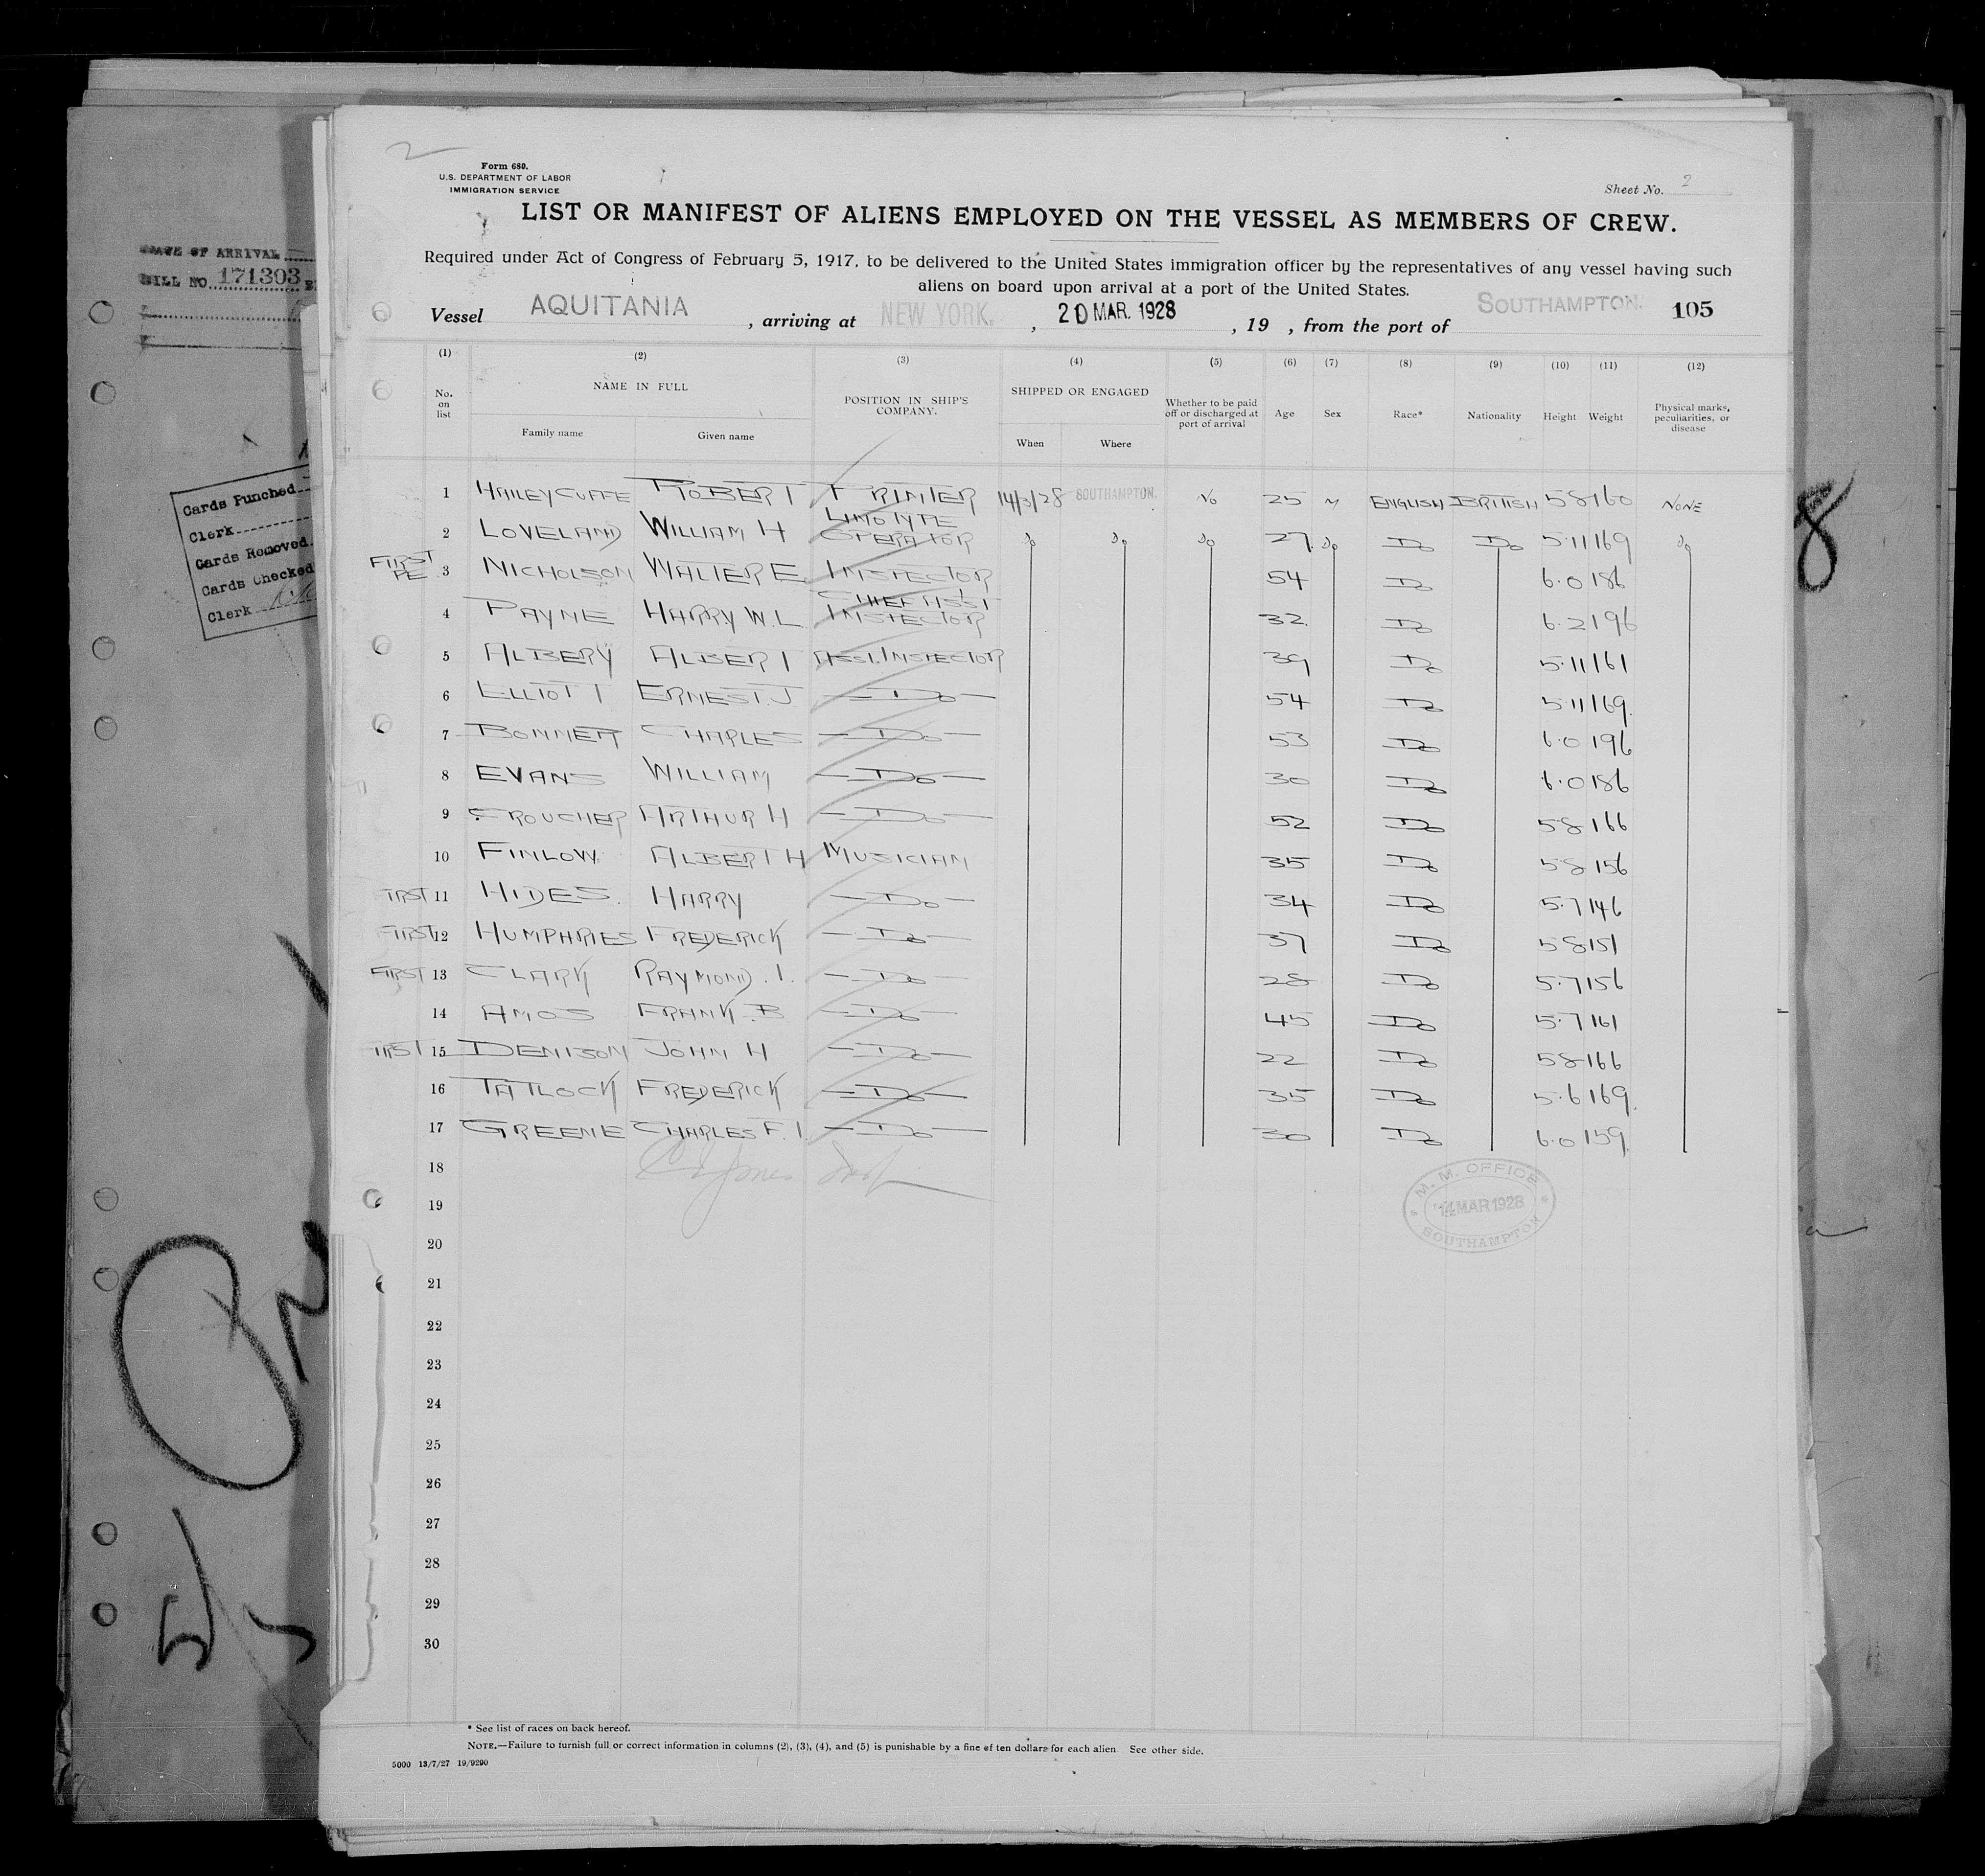 2
Form 680.
U.S. DEPARTMENT OF LABOR
IMMIGRATION SERVICE
Sheet No. 2
LIST OR MANIFEST OF ALIENS EMPLOYED ON THE VESSEL AS MEMBERS OF CREW.
Required under Act of Congress of February 5, 1917, to be delivered to the United States immigration officer by the representatives of any vessel having such
aliens on board upon arrival at a port of the United States.
Vessel AQUITANIA , arriving at NEW YORK. , 20 MAR. 1928 , 19 , from the port of SOUTHAMPTON. 105
(1) (2) (3) (4) (5) (6) (7) (8) (9) (10) (11) (12)
No. on list NAME IN FULL Family name Given name POSITION IN SHIP'S COMPANY. SHIPPED OR ENGAGED When Where Whether to be paid off or discharged at port of arrival Age Sex Race* Nationality Height Weight Physical marks, peculiarities, or disease
1 ROBERT PRINTER 14/3/28 SOUTHAMPTON. No 25 M ENGLISH BRITISH 5·8 160 NONE
2 LOVELAND WILLIAM H LINOTYPE OPERATOR Do Do Do 27 Do Do Do 5·11 169 Do
FIRST 3 NICHOLSON WALTER E INSPECTOR 54 Do 6·0 186
4 PAYNE HARRY W.L. CHIEF ASST INSPECTOR 32 Do 6·2 196
5 ALBERY ALBERT ASST. INSPECTOR 39 Do 5·11 161
6 ELLIOTT ERNEST. J — Do — 54 Do 5·11 169
7 CHARLES — Do — 53 Do 6·0 196
8 EVANS WILLIAM — Do — 30 Do 6·0 186
9 CROUCHER ARTHUR H — Do — 52 Do 5·8 166
10 FINLOW ALBERT H MUSICIAN 35 Do 5·8 156
FIRST 11 HIDES. HARRY — Do — 34 Do 5·7 146
FIRST 12 HUMPHRIES FREDERICK — Do — 37 Do 5·8 151
FIRST 13 CLARK RAYMOND. T. — Do — 28 Do 5·7 156
14 AMOS FRANK. B — Do — 45 Do 5·7 161
FIRST 15 DENISON JOHN H — Do — 22 Do 5·8 166
16 TATLOCK FREDERICK — Do — 35 Do 5·6 169
17 GREENE CHARLES F. T. — Do — 30 Do 6·0 159
18
19
20
21
22
23
24
25
26
27
28
29
30
M. M. OFFICE
14 MAR 1928
SOUTHAMPTON
* See list of races on back hereof.
NOTE.—Failure to furnish full or correct information in columns (2), (3), (4), and (5) is punishable by a fine of ten dollars for each alien See other side.
5000 13/7/27 19/9290
DATE OF ARRIVAL
BILL NO. 171303
Cards Punched
Clerk
Cards Removed
Cards Checked
Clerk
8